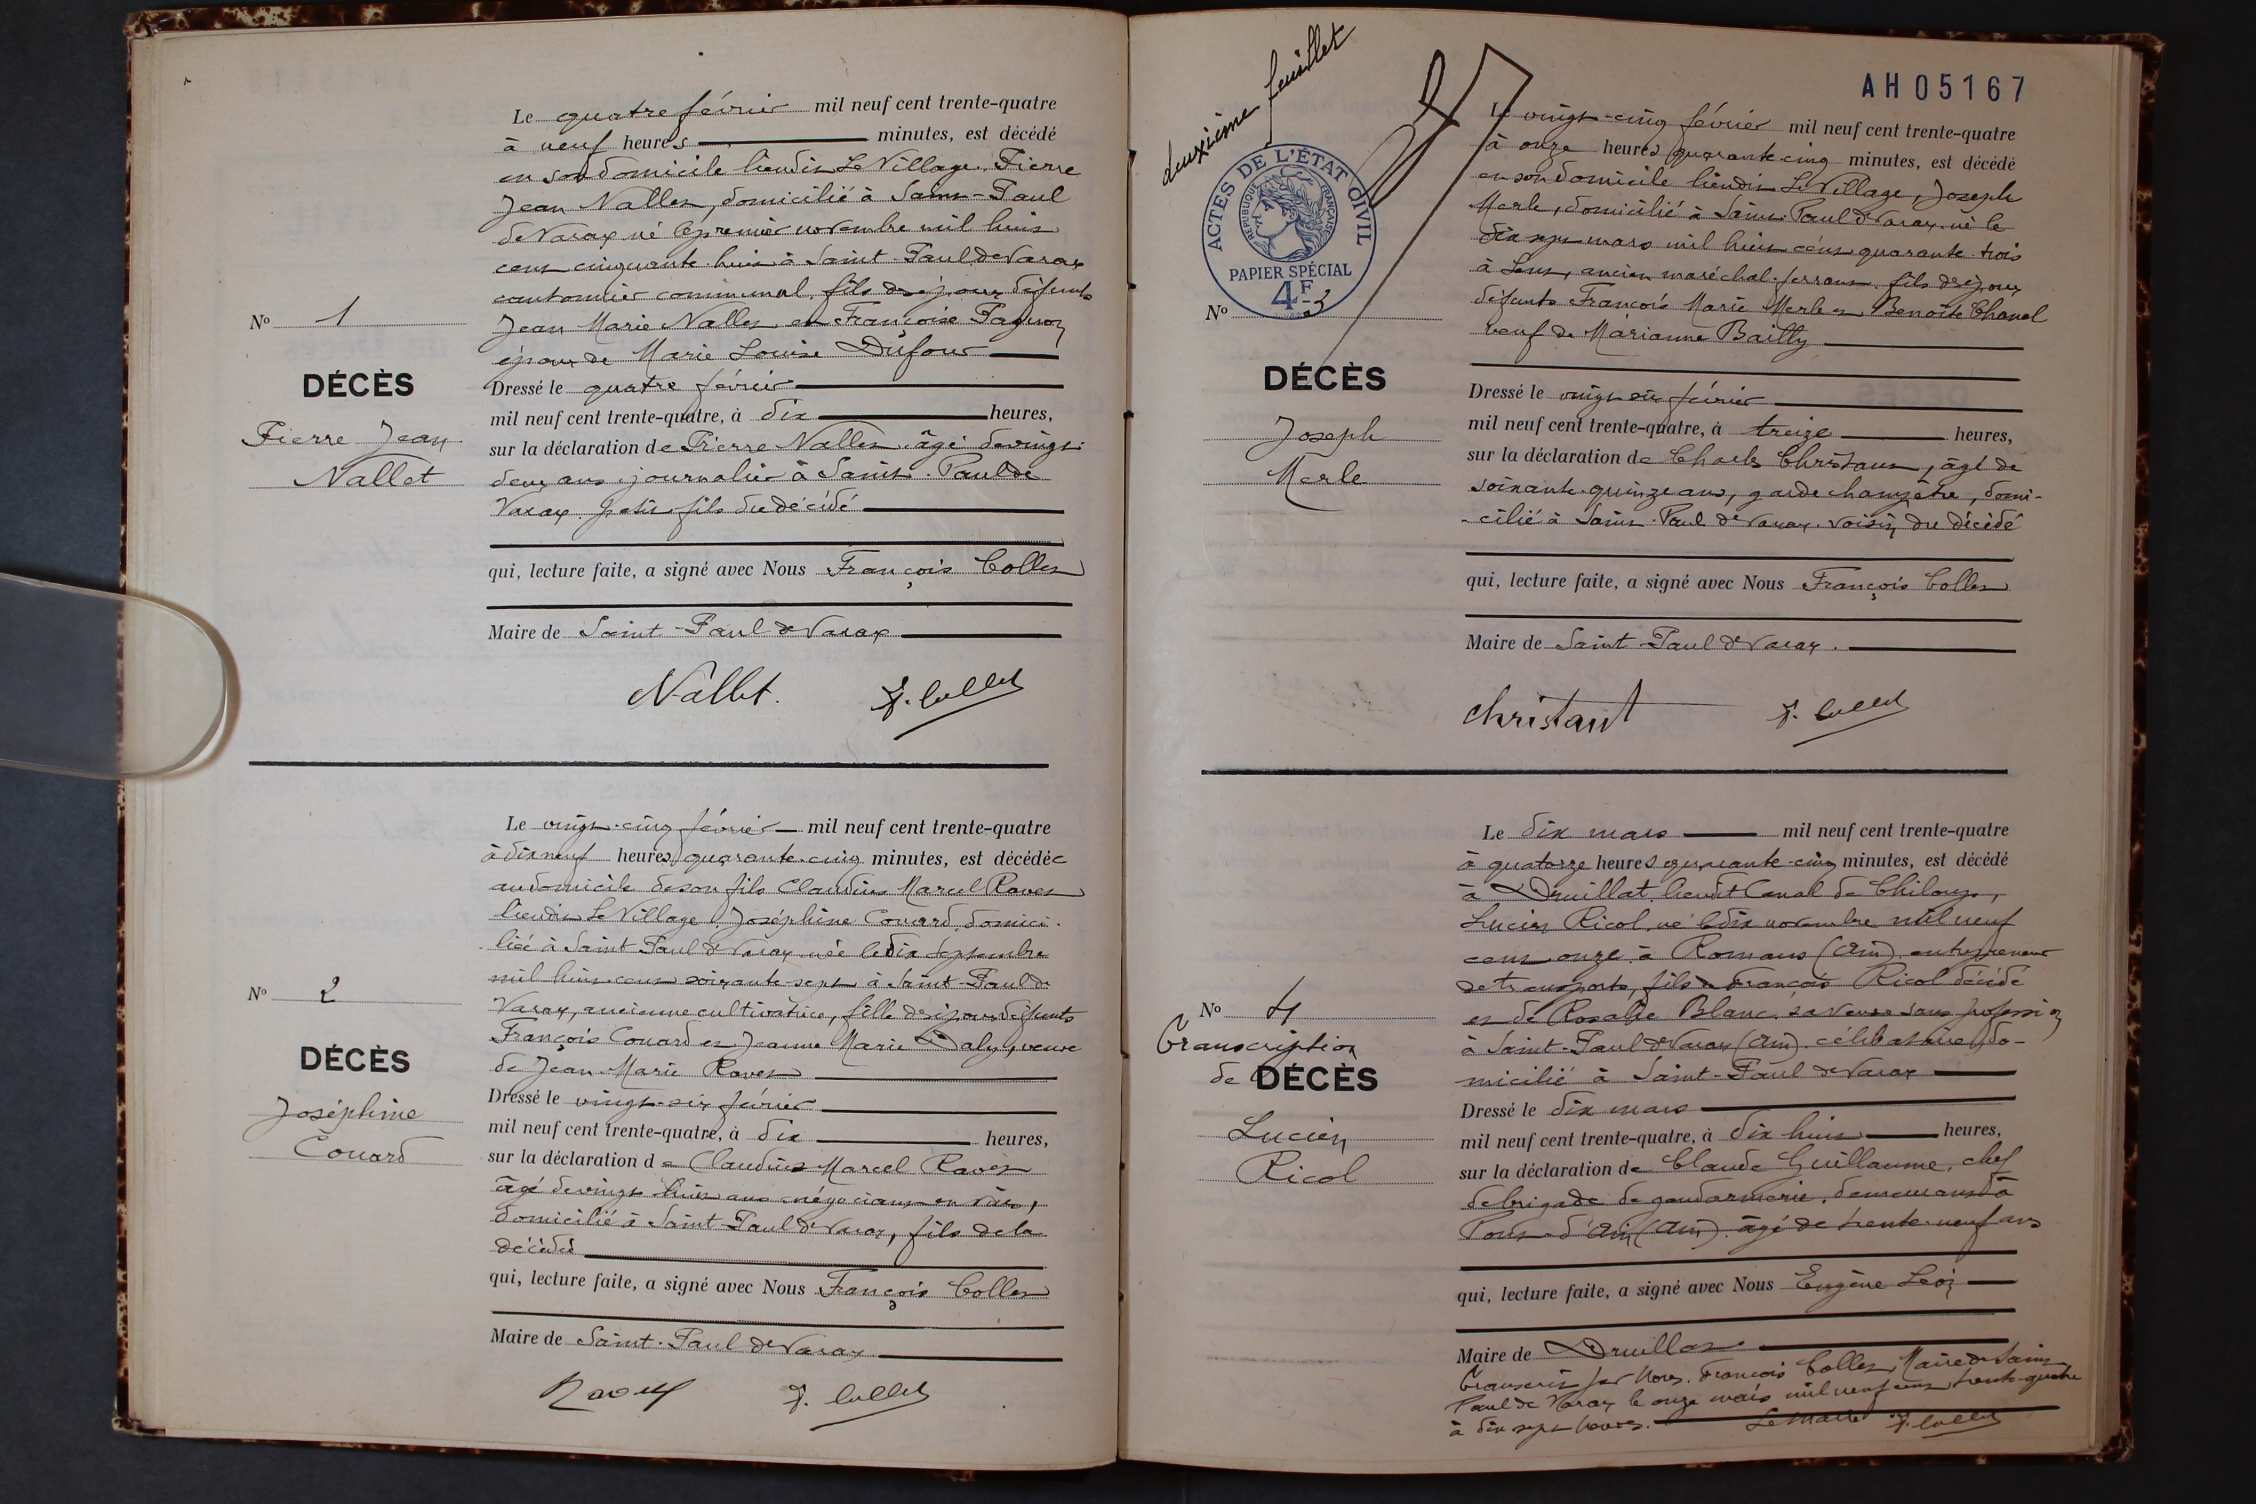 Le quatre février mil neuf cent trente-quatre
à neuf heures minutes, est décédé
en son domicile lieudit Le Village, Pierre
Jean Nallet, domicilié à Saint-Paul
de Varax né le premier novembre mil huit
cent cinquante-huit à Saint-Paul de Varax
cantonnier communal, fils des époux défunts
Jean Marie Nallet et Françoise
époux de Marie Louise Dufour
N° 1
DÉCÈS
Pierre Jean
Nallet
Dressé le quatre février
mil neuf cent trente-quatre, à dix heures,
sur la déclaration de Pierre Nallet âgé de vingt
deux ans, journalier à Saint-Paul de
Varax petit fils du décédé
qui, lecture faite, a signé avec Nous François Collet
Maire de Saint-Paul de Varax
Nallet. F. Collet
Le vingt-cinq février mil neuf cent trente-quatre
à dix neuf heures quarante-cinq minutes, est décédée
au domicile de son fils Claudius Marcel Ravet
lieudit Le Village, Joséphine Couard, domici-
liée à Saint Paul de Varax née le dix septembre
mil huit cent soixante-sept à Saint-Paul de
Varax, ancienne cultivatrice, fille des époux défunts
François Couard et Jeanne Marie Daly, veuve
de Jean-Marie Ravet
N° 2
DÉCÈS
Joséphine
Couard
Dressé le vingt-six février
mil neuf cent trente-quatre, à dix heures,
sur la déclaration de Claudius Marcel Ravet
âgé de vingt huit ans négociant en vins,
domicilié à Saint Paul de Varax, fils de la
décédée
qui, lecture faite, a signé avec Nous François Collet
Maire de Saint-Paul de Varax
Ravet F. Collet
deuxième feuillet
AH05167
ACTES DE L'ÉTAT CIVIL
RÉPUBLIQUE FRANÇAISE
PAPIER SPÉCIAL
4F
Le vingt-cinq février mil neuf cent trente-quatre
à onze heures quarante-cinq minutes, est décédé
en son domicile lieudit Le Village, Joseph
Merle, domicilié à Saint-Paul de Varax né le
dix sept mars mil huit cent quarante-trois
à Lent, ancien maréchal-ferrant, fils des époux
défunts François Marie Merle et Benoîte Chanel
veuf de Marianne Bailly
N° 3
DÉCÈS
Joseph
Merle
Dressé le vingt six février
mil neuf cent trente-quatre, à treize heures,
sur la déclaration de Charles Christaut, âgé de
soixante-quinze ans, garde champêtre, domi-
-cilié à Saint-Paul de Varax, voisin du décédé
qui, lecture faite, a signé avec Nous François Collet
Maire de Saint-Paul de Varax.
Christaut F. Collet
Le dix mars mil neuf cent trente-quatre
à quatorze heures quarante-cinq minutes, est décédé
à Druillat, lieudit Canal de
Lucien Ricol, né le dix novembre mil neuf
cent onze à Romans (Ain) entrepreneur
de transports, fils de François Ricol décédé
et de Rosalie Blanc, sa veuve sans profession
à Saint-Paul de Varax (Ain), célibataire, do-
micilié à Saint-Paul de Varax
N° 4
Transcription
de DÉCÈS
Lucien
Ricol
Dressé le dix mars
mil neuf cent trente-quatre, à dix huit heures,
sur la déclaration de Claude Guillaume, chef
de brigade de gendarmerie, demeurant à
Pont-d'Ain (Ain), âgé de trente-neuf ans
qui, lecture faite, a signé avec Nous Eugène Léon
Maire de Druillat
Transcrit par Nous, François Collet, Maire de Saint
Paul de Varax le onze mars mil neuf cent trente-quatre
à dix sept heures. Le Maire F. Collet